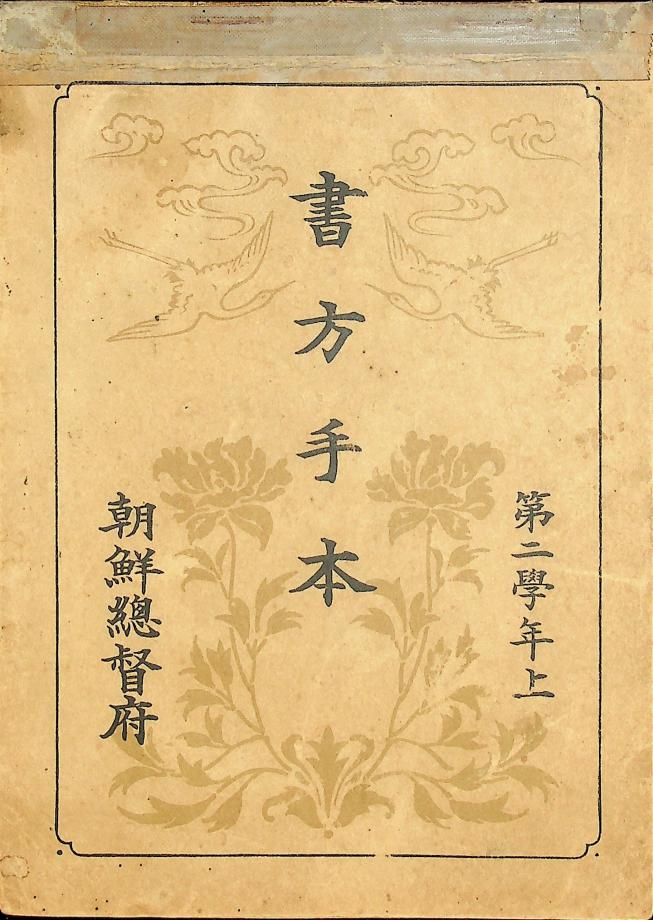 第二學年上
書方手本
朝鮮總督府